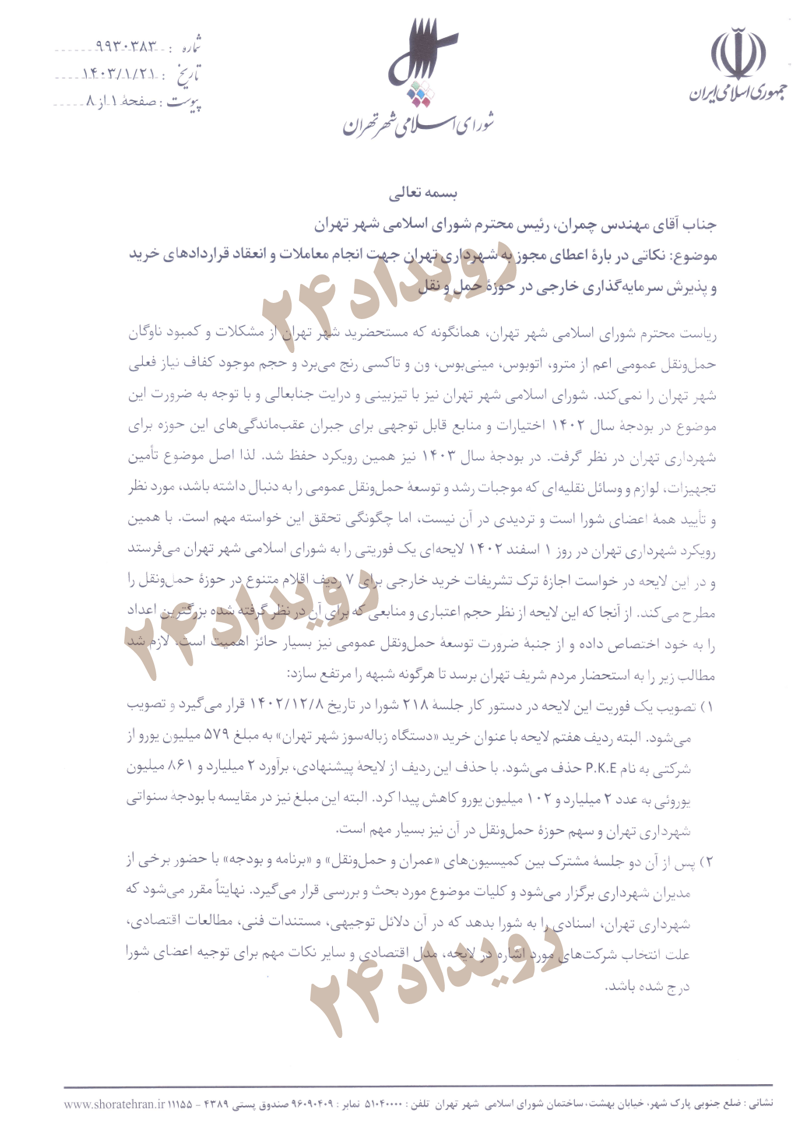 جمهوری اسلامی ایران
شورای اسلامی شهر تهران
شماره : ۹۹۳۰۳۸۳
تاریخ : ۱۴۰۳/۱/۲۱
پیوست : صفحهٔ ۱ از ۸
بسمه تعالی
جناب آقای مهندس چمران، رئیس محترم شورای اسلامی شهر تهران
موضوع: نکاتی در بارهٔ اعطای مجوز به شهرداری تهران جهت انجام معاملات و انعقاد قراردادهای خرید
و پذیرش سرمایه‌گذاری خارجی در حوزهٔ حمل و نقل
رویداد۲۴
ریاست محترم شورای اسلامی شهر تهران، همانگونه که مستحضرید شهر تهران از مشکلات و کمبود ناوگان
حمل‌ونقل عمومی اعم از مترو، اتوبوس، مینی‌بوس، ون و تاکسی رنج می‌برد و حجم موجود کفاف نیاز فعلی
شهر تهران را نمی‌کند. شورای اسلامی شهر تهران نیز با تیزبینی و درایت جنابعالی و با توجه به ضرورت این
موضوع در بودجهٔ سال ۱۴۰۲ اختیارات و منابع قابل توجهی برای جبران عقب‌ماندگی‌های این حوزه برای
شهرداری تهران در نظر گرفت. در بودجهٔ سال ۱۴۰۳ نیز همین رویکرد حفظ شد. لذا اصل موضوع تأمین
تجهیزات، لوازم و وسائل نقلیه‌ای که موجبات رشد و توسعهٔ حمل‌ونقل عمومی را به دنبال داشته باشد، مورد نظر
و تأیید همهٔ اعضای شورا است و تردیدی در آن نیست، اما چگونگی تحقق این خواسته مهم است. با همین
رویکرد شهرداری تهران در روز ۱ اسفند ۱۴۰۲ لایحه‌ای یک فوریتی را به شورای اسلامی شهر تهران می‌فرستد
و در این لایحه در خواست اجازهٔ ترک تشریفات خرید خارجی برای ۷ ردیف اقلام متنوع در حوزهٔ حمل‌ونقل را
مطرح می‌کند. از آنجا که این لایحه از نظر حجم اعتباری و منابعی که برای آن در نظر گرفته شده بزرگترین اعداد
را به خود اختصاص داده و از جنبهٔ ضرورت توسعهٔ حمل‌ونقل عمومی نیز بسیار حائز اهمیت است. لازم شد
مطالب زیر را به استحضار مردم شریف تهران برسد تا هرگونه شبهه را مرتفع سازد:
رویداد۲۴
۱) تصویب یک فوریت این لایحه در دستور کار جلسهٔ ۲۱۸ شورا در تاریخ ۱۴۰۲/۱۲/۸ قرار می‌گیرد و تصویب
می‌شود. البته ردیف هفتم لایحه با عنوان خرید «دستگاه زباله‌سوز شهر تهران» به مبلغ ۵۷۹ میلیون یورو از
شرکتی به نام P.K.E حذف می‌شود. با حذف این ردیف از لایحهٔ پیشنهادی، برآورد ۲ میلیارد و ۸۶۱ میلیون
یوروئی به عدد ۲ میلیارد و ۱۰۲ میلیون یورو کاهش پیدا کرد. البته این مبلغ نیز در مقایسه با بودجهٔ سنواتی
شهرداری تهران و سهم حوزهٔ حمل‌ونقل در آن نیز بسیار مهم است.
۲) پس از آن دو جلسهٔ مشترک بین کمیسیون‌های «عمران و حمل‌ونقل» و «برنامه و بودجه» با حضور برخی از
مدیران شهرداری برگزار می‌شود و کلیات موضوع مورد بحث و بررسی قرار می‌گیرد. نهایتاً مقرر می‌شود که
شهرداری تهران، اسنادی را به شورا بدهد که در آن دلائل توجیهی، مستندات فنی، مطالعات اقتصادی،
علت انتخاب شرکت‌های مورد اشاره در لایحه، مدل اقتصادی و سایر نکات مهم برای توجیه اعضای شورا
درج شده باشد.
رویداد۲۴
نشانی : ضلع جنوبی پارک شهر، خیابان بهشت، ساختمان شورای اسلامی شهر تهران تلفن : ۵۱۰۴۰۰۰۰ نمابر : ۹۶۰۹۰۴۰۹ صندوق پستی ۴۳۸۹ - ۱۱۱۵۵ www.shoratehran.ir